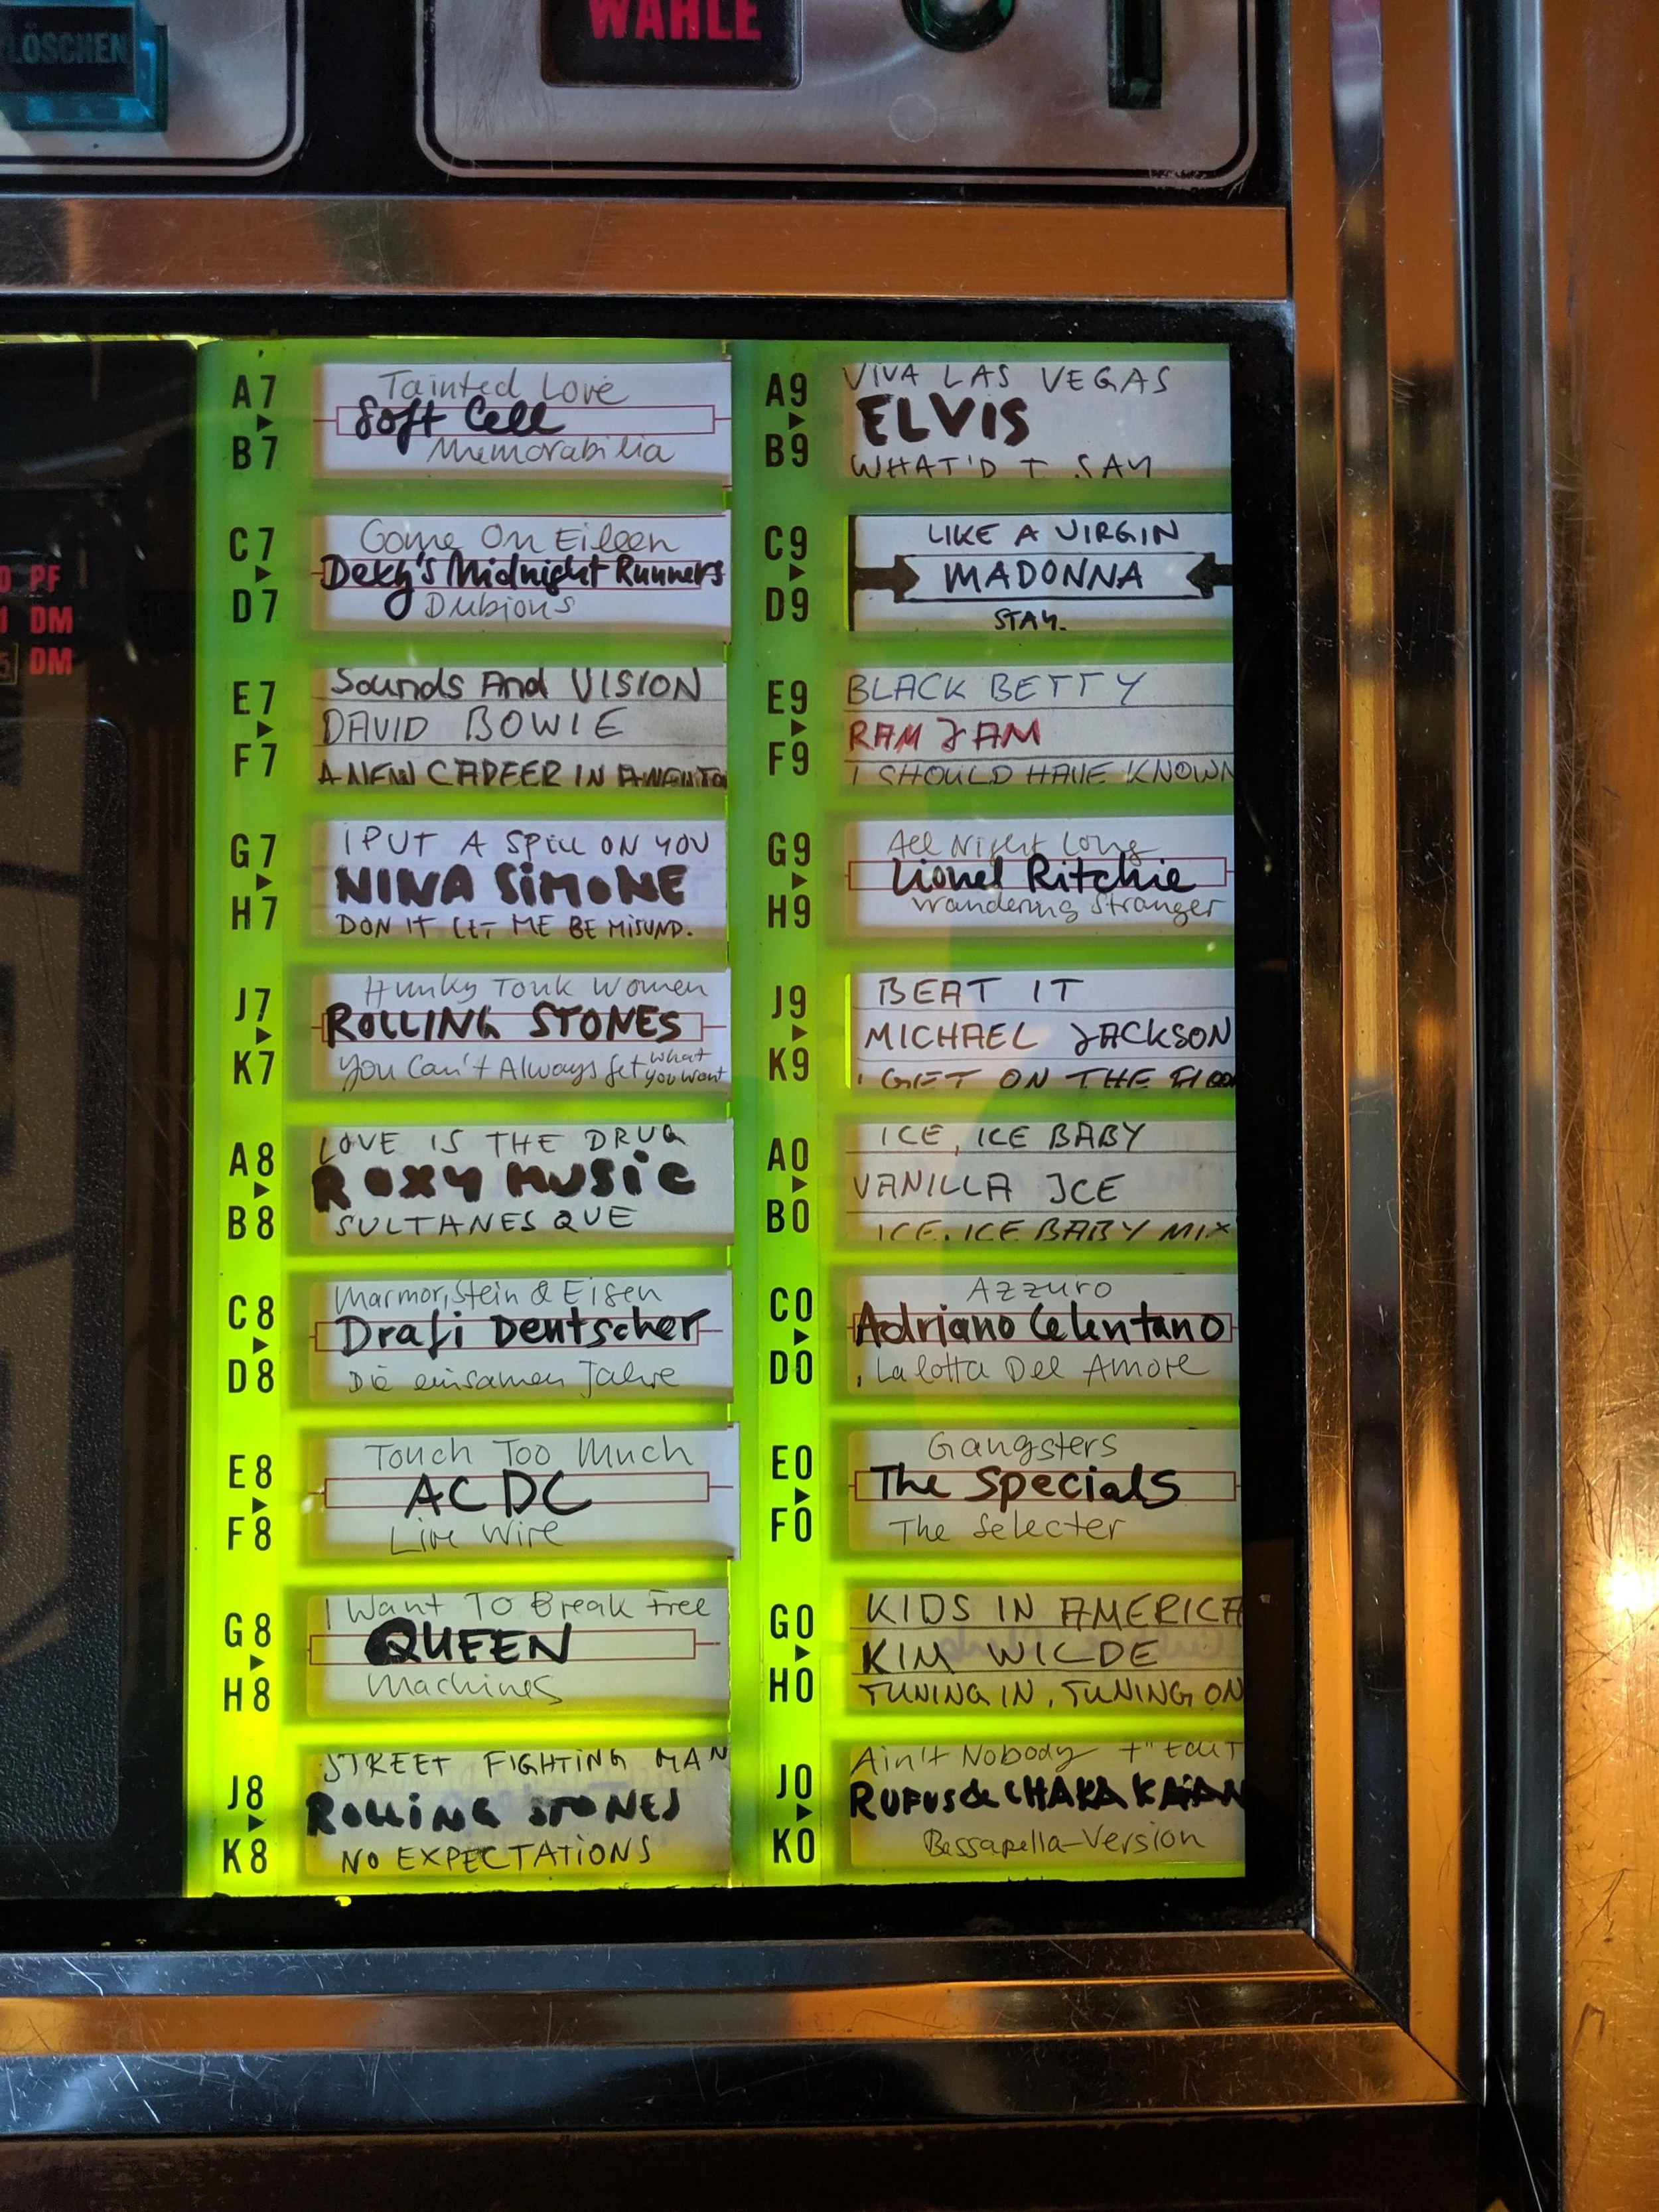 LÖSCHEN
WÄHLE
PF
DM
DM
A7
Tainted Love
Soft Cell
B7
Memorabilia
C7
Come On Eileen
Dexy's Midnight Runners
D7
Dubious
E7
Sounds And VISION
DAVID BOWIE
F7
A NEW CAREER IN A NEW TO
G7
I PUT A SPELL ON YOU
NINA SiMONE
H7
DON IT LET ME BE MISUND.
J7
Hunky Tonk Women
ROLLING STONES
K7
You Can't Always Get What you want
A8
LOVE IS THE DRUG
ROXY MUSIC
B8
SULTANESQUE
C8
Marmor, Stein & Eisen
Drafi Deutscher
D8
Die einsamen Jahre
E8
Touch Too Much
ACDC
F8
Live Wire
G8
I Want To Break Free
QUEEN
H8
Machines
J8
STREET FIGHTING MAN
ROLLING STONES
K8
NO EXPECTATIONS
A9
VIVA LAS VEGAS
ELVIS
B9
WHAT'D I SAY
C9
LIKE A VIRGIN
MADONNA
D9
STAY.
E9
BLACK BETTY
RAM JAM
F9
I SHOULD HAVE KNOWN
G9
All Night Long
Lionel Ritchie
H9
Wandering Stranger
J9
BEAT IT
MICHAEL JACKSON
K9
GET ON THE FLOOR
A0
ICE, ICE BABY
VANILLA ICE
B0
ICE, ICE BABY MIX
C0
Azzuro
Adriano Celentano
D0
La lotta Del Amore
E0
Gangsters
The Specials
F0
The Selecter
G0
KIDS IN AMERICA
KIM WILDE
H0
TUNING IN, TUNING ON
J0
Ain't Nobody
RUFUS & CHAKA KHAN
K0
Bassapella-Version